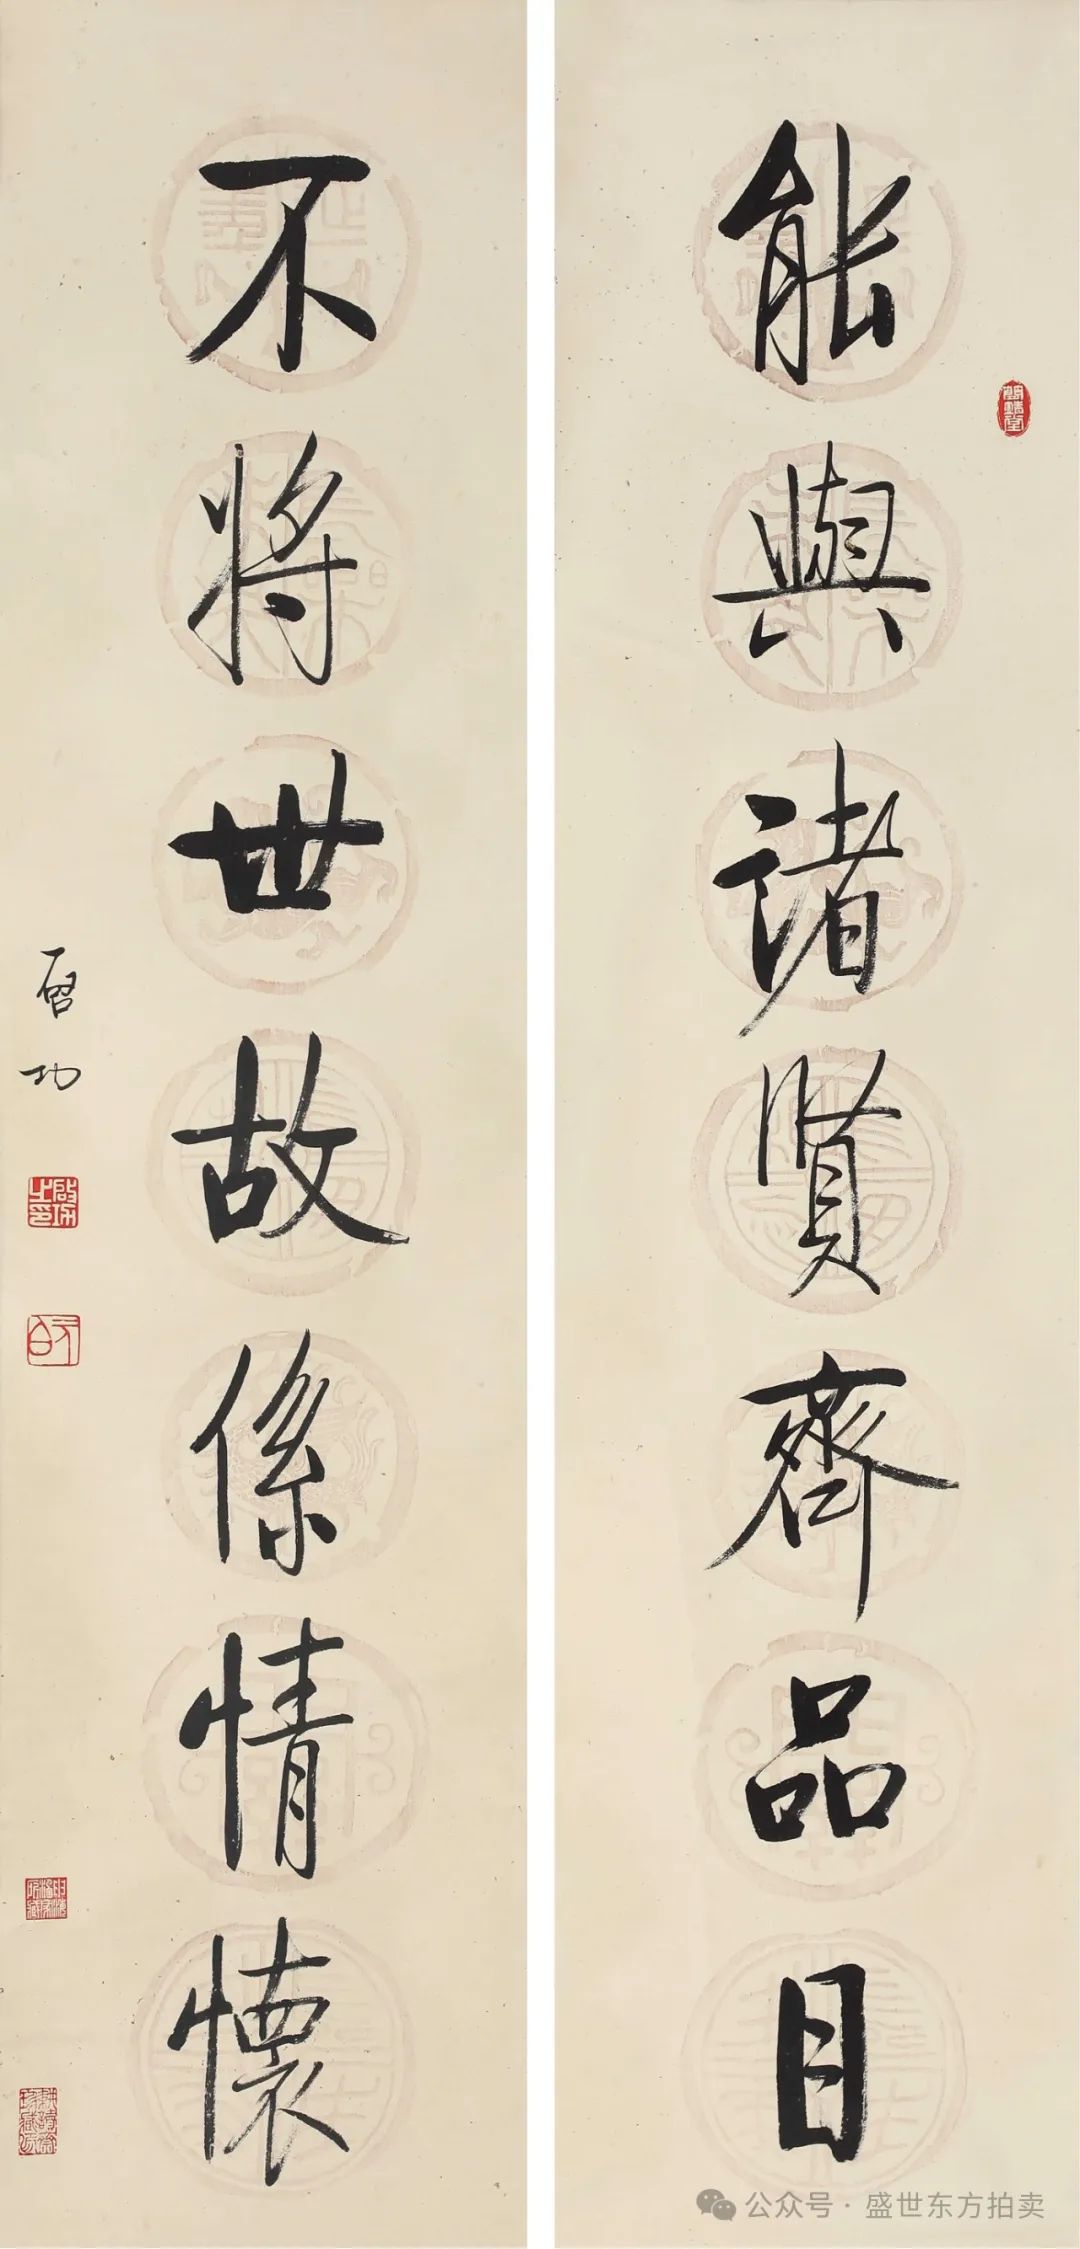 能與諸賢齊品目
不將世故係情懷
啓功
公众号·盛世东方拍卖